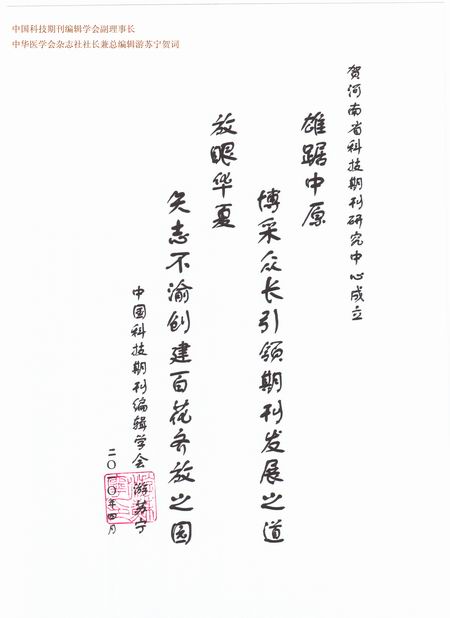 中国科技期刊编辑学会副理事长
中华医学会杂志社社长兼总编辑游苏宁贺词
贺河南省科技期刊研究中心成立
雄踞中原
博采众长引领期刊发展之道
放眼华夏
矢志不渝创建百花齐放之园
中国科技期刊编辑学会 游苏宁
二〇一〇年四月